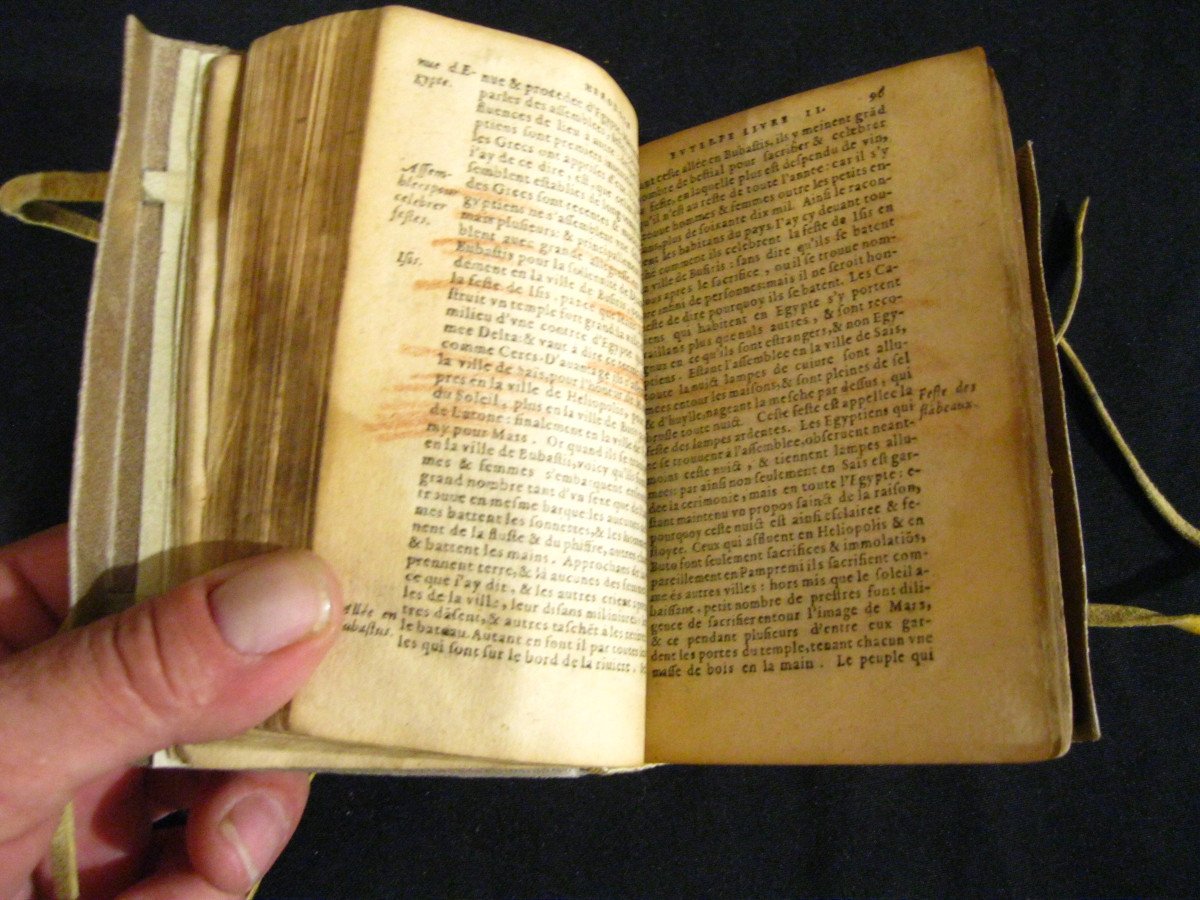 HERO
nue d'E-
gypte.
nue & procedee d'Egypte
parler des assemblees
fluences de lieu à autre
ptiens sont premiers
les Grecs ont appris d'eux
l'ay de ce dire, est que
semblent establies de long
des Grecs sont recentes &
Assem-
blees pour
celebrer
festes.
gyptiens ne s'assemblent vne
main plusieurs: & principalement
blent auec grande allegresse
Bubastis pour la
Isis.
dement en la ville de Busiris
la feste de Isis, parce que
struit vn temple fort grand
milieu d'vne contree d'Egypte
mee Delta: & vaut à dire
comme Ceres. D'auantage
la ville de Sais, pour l'hon
pres en la ville de Heliopolis, pour
du Soleil, plus en la ville de
de Latone: finalement en la ville de
my pour Mars. Or quand ils se
en la ville de Bubastis, voicy qu'ils
mes & femmes s'embarquent
grand nombre tant d'vn sexe que de
trouue en mesme barque les aucunes
mes battent les sonnettes, & les hommes
nent de la fluste & du phiffre, autres
& battent les mains. Approchans de
prennent terre, & là aucunes des femmes
ce que l'ay dit, & les autres crient apres
les de la ville, leur disans
Allée en
Bubastus.
tres dãsent, & autres taschẽt a les
le bateau. Autant en font il par toutes
les qui sont sur le bord de la riuiere.
EVTERPE LIVRE II. 96
ceste allée en Bubastis, ils y meinent grãd
nombre de bestial pour sacrifier & celebrer
feste, en laquelle plus est despendu de vin,
qu'il n'est au reste de toute l'année: car il s'y
trouue hommes & femmes outre les petits en-
plus de soixante dix mil. Ainsi le racon-
tent les habitans du pays. I'ay cy deuant tou-
ché comment ils celebrent la feste de Isis en
ville de Busiris: sans dire qu'ils se batent
tous apres le sacrifice, ou il se trouue nom-
bre infini de personnes: mais il ne seroit hon-
neste de dire pourquoy ils se batent. Les Ca-
riens qui habitent en Egypte s'y portent
vaillans plus que nuls autres, & sont reco-
gnuz en ce qu'ils sont estrangers, & non Egy-
ptiens. Estant l'assemblee en la ville de Sais,
toute la nuict lampes de cuiure sont allu-
mées entour les maisons, & sont pleines de sel
& d'huylle, nageant la mesche par dessus, qui
brusle toute nuict. Ceste feste est appellee la
Feste des
flãbeaux.
feste des lampes ardentes. Les Egyptiens qui
ne se trouuent à l'assemblee, obseruent neant-
moins ceste nuict, & tiennent lampes allu-
mees: par ainsi non seulement en Sais est gar-
dee la cerimonie, mais en toute l'Egypte: e-
stant maintenu vn propos sainct de la raison,
pourquoy ceste nuict est ainsi esclairee & fe-
stoyee. Ceux qui affluent en Heliopolis & en
Buto font seulement sacrifices & immolatiõs,
pareillement en Pampremi ils sacrifient com-
me és autres villes: hors mis que le soleil a-
baissant, petit nombre de prestres sont dili-
gence de sacrifier entour l'image de Mars,
& ce pendant plusieurs d'entre eux gar-
dent les portes du temple, tenant chacun vne
masse de bois en la main. Le peuple qui